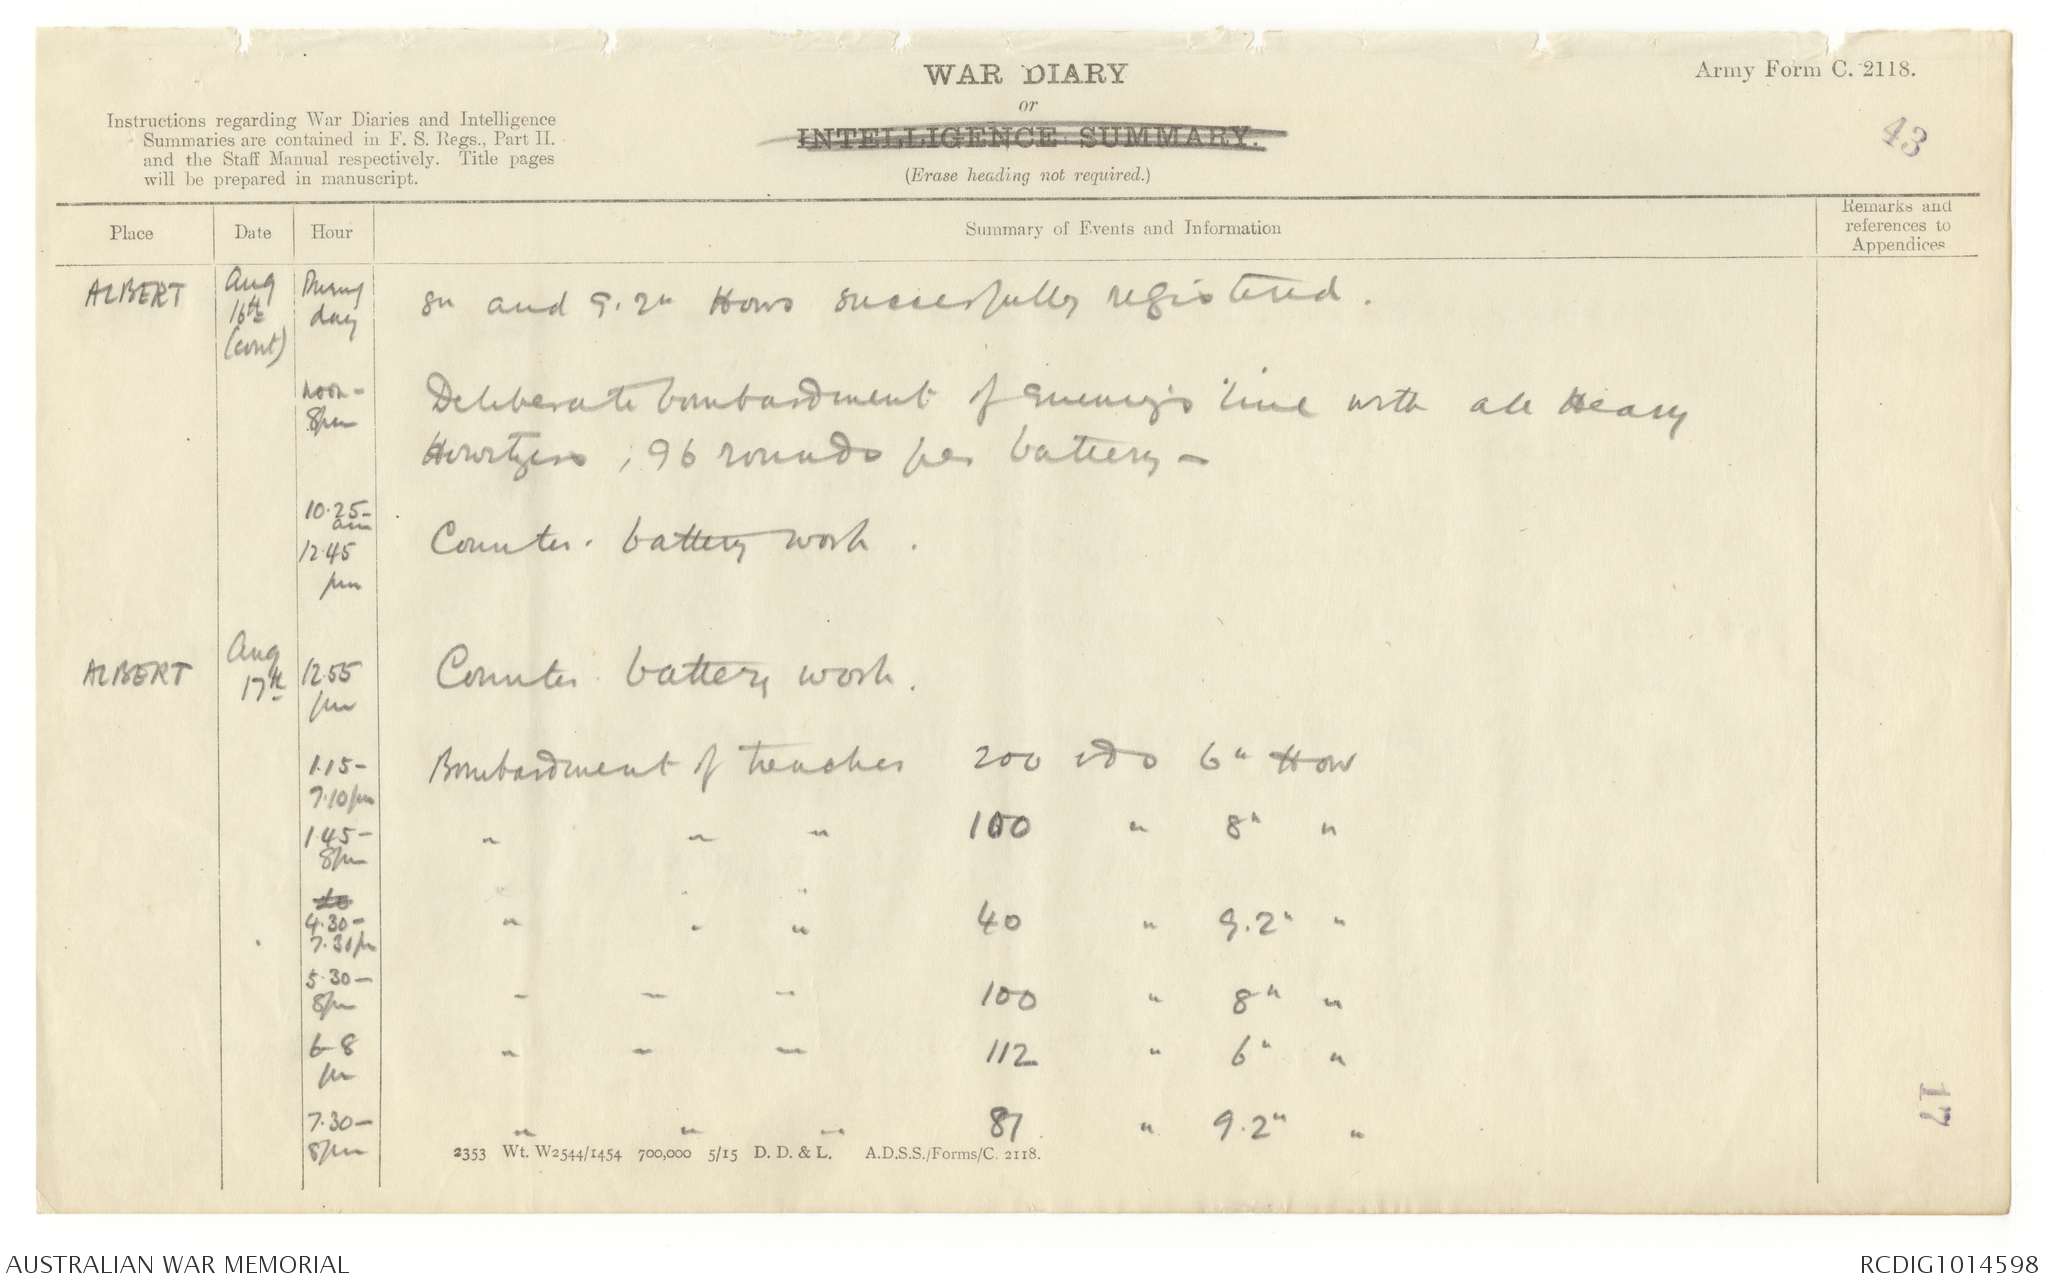 WAR DIARY
or
INTELLIGENCE SUMMARY.
(Erase heading not required.)
Army Form C. 2118.
43
Instructions regarding War Diaries and Intelligence
Summaries are contained in F. S. Regs., Part II.
and the Staff Manual respectively. Title pages
will be prepared in manuscript.
Place Date Hour Summary of Events and Information Remarks and references to Appendices
ALBERT Aug 16th (cont) During day 8" and 9.2" Hows successfully registered.
noon - 8pm Deliberate bombardment of enemy's line with all Heavy
Howitzers, 96 rounds per battery -
10.25 - am 12.45 pm Counter-battery work.
ALBERT Aug 17th 12.55 pm Counter-battery work.
1.15 - 7.10pm Bombardment of trenches 200 rds 6" How
1.45 - 8pm " " " 100 " 8" "
4.30 - 7.30pm " " " 40 " 9.2" "
5.30 - 8pm " " " 100 " 8" "
6-8 pm " " " 112 " 6" "
7.30 - 8pm " " " 87 " 9.2" "
2353 Wt. W2544/1454 700,000 5/15 D. D. & L. A.D.S.S./Forms/C. 2118.
17
AUSTRALIAN WAR MEMORIAL
RCDIG1014598